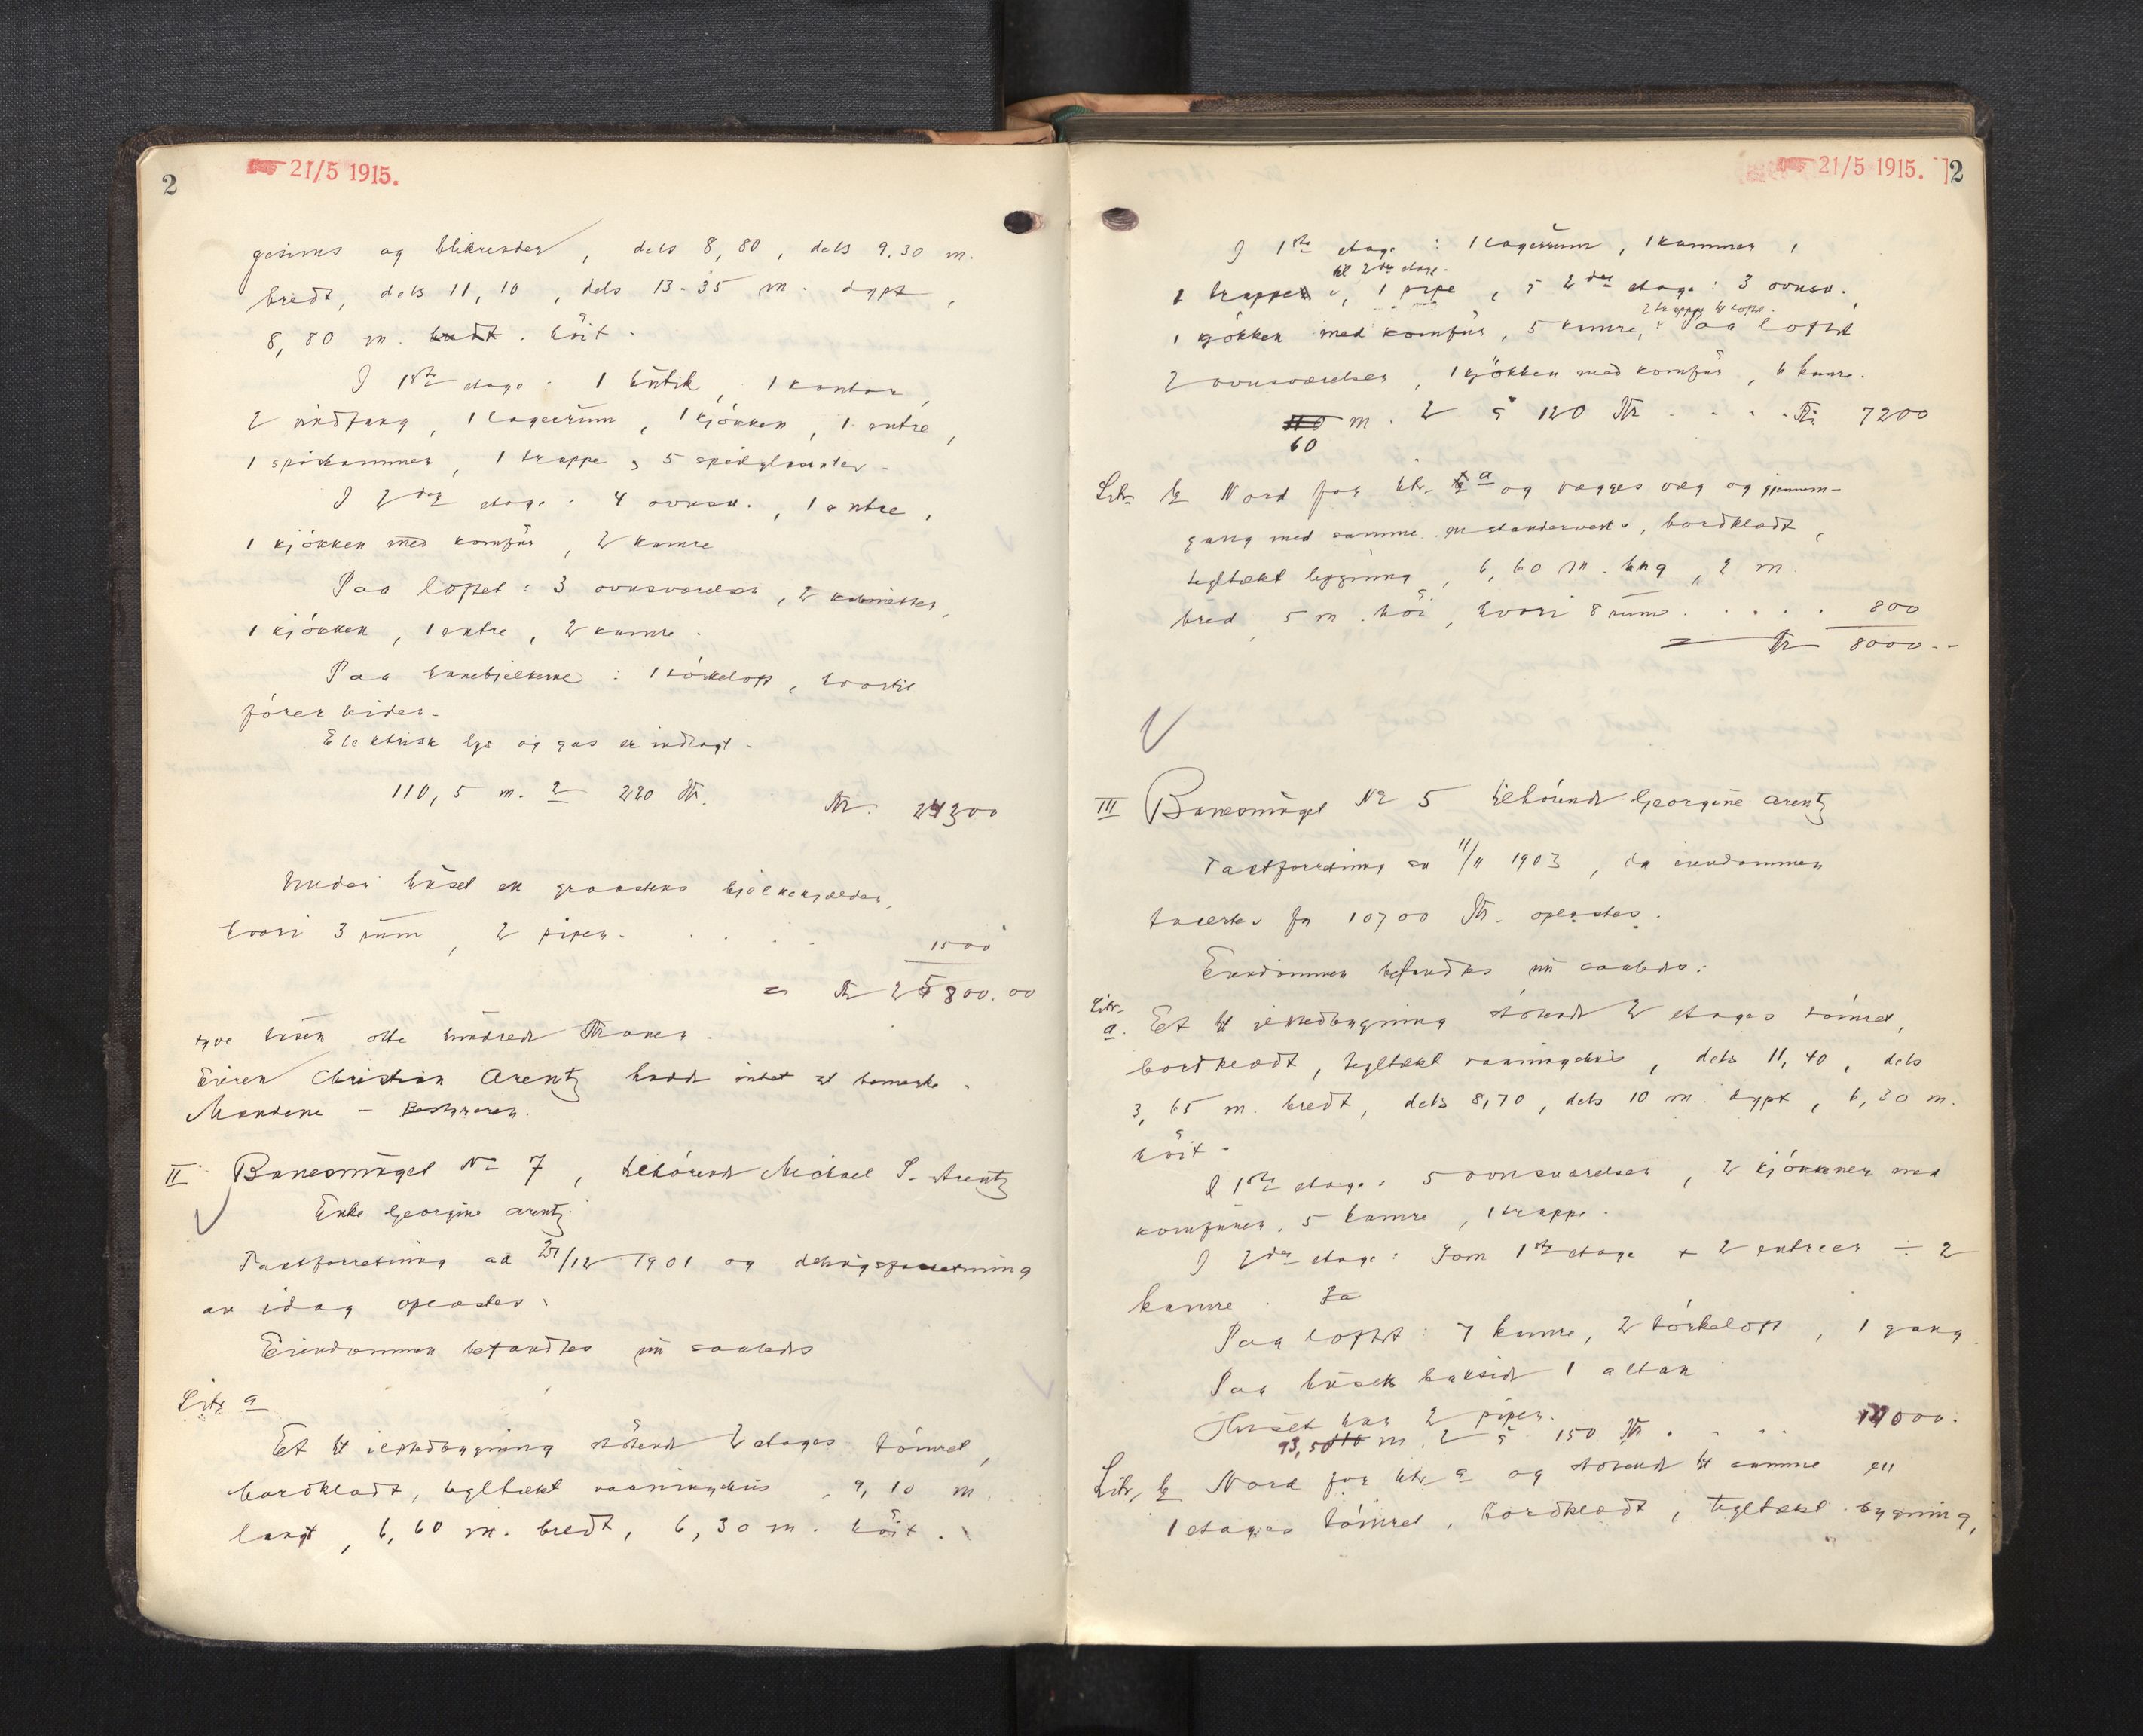 2
21/5 1915.
gesims og blikrender, dels 8,80, dels 9.30 m.
bredt, dels 11,10, dels 13.35 m. dypt,
8,80 m. bredt. höit.
I 1ste etage: 1 butik, 1 kontor,
2 vindfang, 1 lagerrum, 1 kjökken, 1 entre,
1 spiskammer, 1 trappe, 5 speilglasruter.
I 2den etage: 4 ovnsv., 1 entre,
1 kjökken med komfur, 2 kamre
Paa loftet: 3 ovnsværelser, 2 kabinetter,
1 kjökken, 1 entre, 2 kamre.
Paa hanebjelkerne: 1 törkeloft, hvortil
förer
Elektrisk lys og gas er indlagt.
110,5 m. 2 220 Kr. Kr. 24300
Under huset en graastens bjelkekjelder,
hvori 3 rum, 2 piper. . . . . 1500
= Kr 25800.00
tyve otte hundrede Kroner.
Eieren Christian Arentz hadde intet at bemerke.
Mændene - Bestyreren.
II Banesmuget No 7, tilhörende Michael S. Arentz
Enke Georgine Arentz.
Taxtforretning av 21/12 1901 og delingsforretning
av idag oplæstes.
Eiendommen befandtes nu saaledes
Litr a
Et til ildstedbygning stötende 2 etages tömret,
bordklædt, tegltækt vaaningshus, 9,10 m.
langt, 6,60 m. bredt, 6,30 m. höit.
21/5 1915. 2
I 1ste etage: 1 lagerrum, 1 kammer,
til 2den etage.
1 trappe, 1 pipe, i 2den etage: 3 ovnsv.,
2 trapper til loftet.
1 kjökken med komfur, 5 kamre, paa loftet
2 ovnsværelser, 1 kjökken med komfur, 6 kamre.
m. 2 á 120 Kr . . . . Kr: 7200
60
Litr. b Nord for litr. a og vægges væg og gjennem-
gang med samme en standerverks, bordklædt,
tegltækt bygning, 6,60 m. lang, 2 m.
bred, 5 m. höi, hvori 8 rum . . . . . 800
= Kr 8000.-
III Banesmuget No 5 tilhörende Georgine Arentz
Taxtforretning av 11/11 1903, da eiendommen
takertes for 10700 Kr. oplæstes.
Eiendommen befandtes nu saaledes:
Litr.
a. Et til ildstedbygning stötende 2 etages tömret,
bordklædt, tegltækt vaaningshus, dels 11,40, dels
3,65 m. bredt, dels 8,70, dels 10 m. dypt, 6,30 m.
höit.
I 1ste etage: 5 ovnsværelser, 2 kjökkener med
komfurer, 5 kamre, 1 trappe.
I 2den etage: Som 1ste etage + 2 entreer ÷ 2
kamre.
Paa loftet: 7 kamre, 2 törkeloft, 1 gang.
Paa husets bakside 1 altan
Huset har 2 piper.
93,50 m. 2 á 150 Kr . . . 14000.
Litr. b Nord for litr a og stötende til samme en
1 etages tömret, bordklædt, tegltækt bygning,